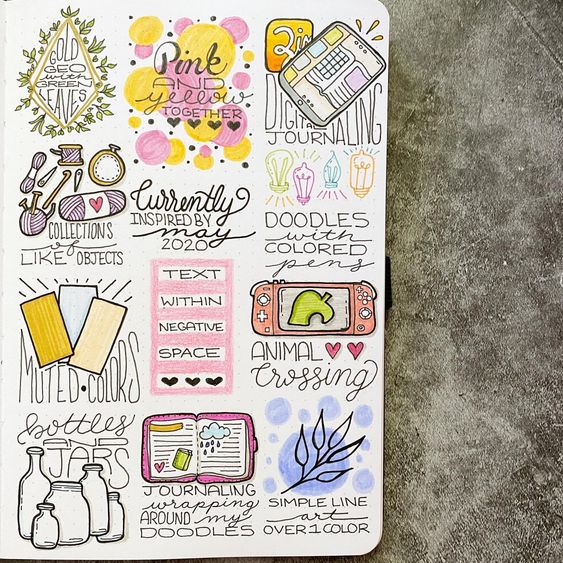 GOLD
GEO
with
GREEN
LEAVES
Pink
AND
yellow
TOGETHER
DIGITAL
JOURNALING
COLLECTIONS
of
LIKE OBJECTS
Currently
INSPIRED BY
may
2020
DOODLES
with
COLORED
pens
MUTED • COLORS
TEXT
WITHIN
NEGATIVE
SPACE
ANIMAL
Crossing
bottles
AND
JARS
JOURNALING
wrapping
AROUND my
DOODLES
SIMPLE LINE
art
OVER 1 COLOR